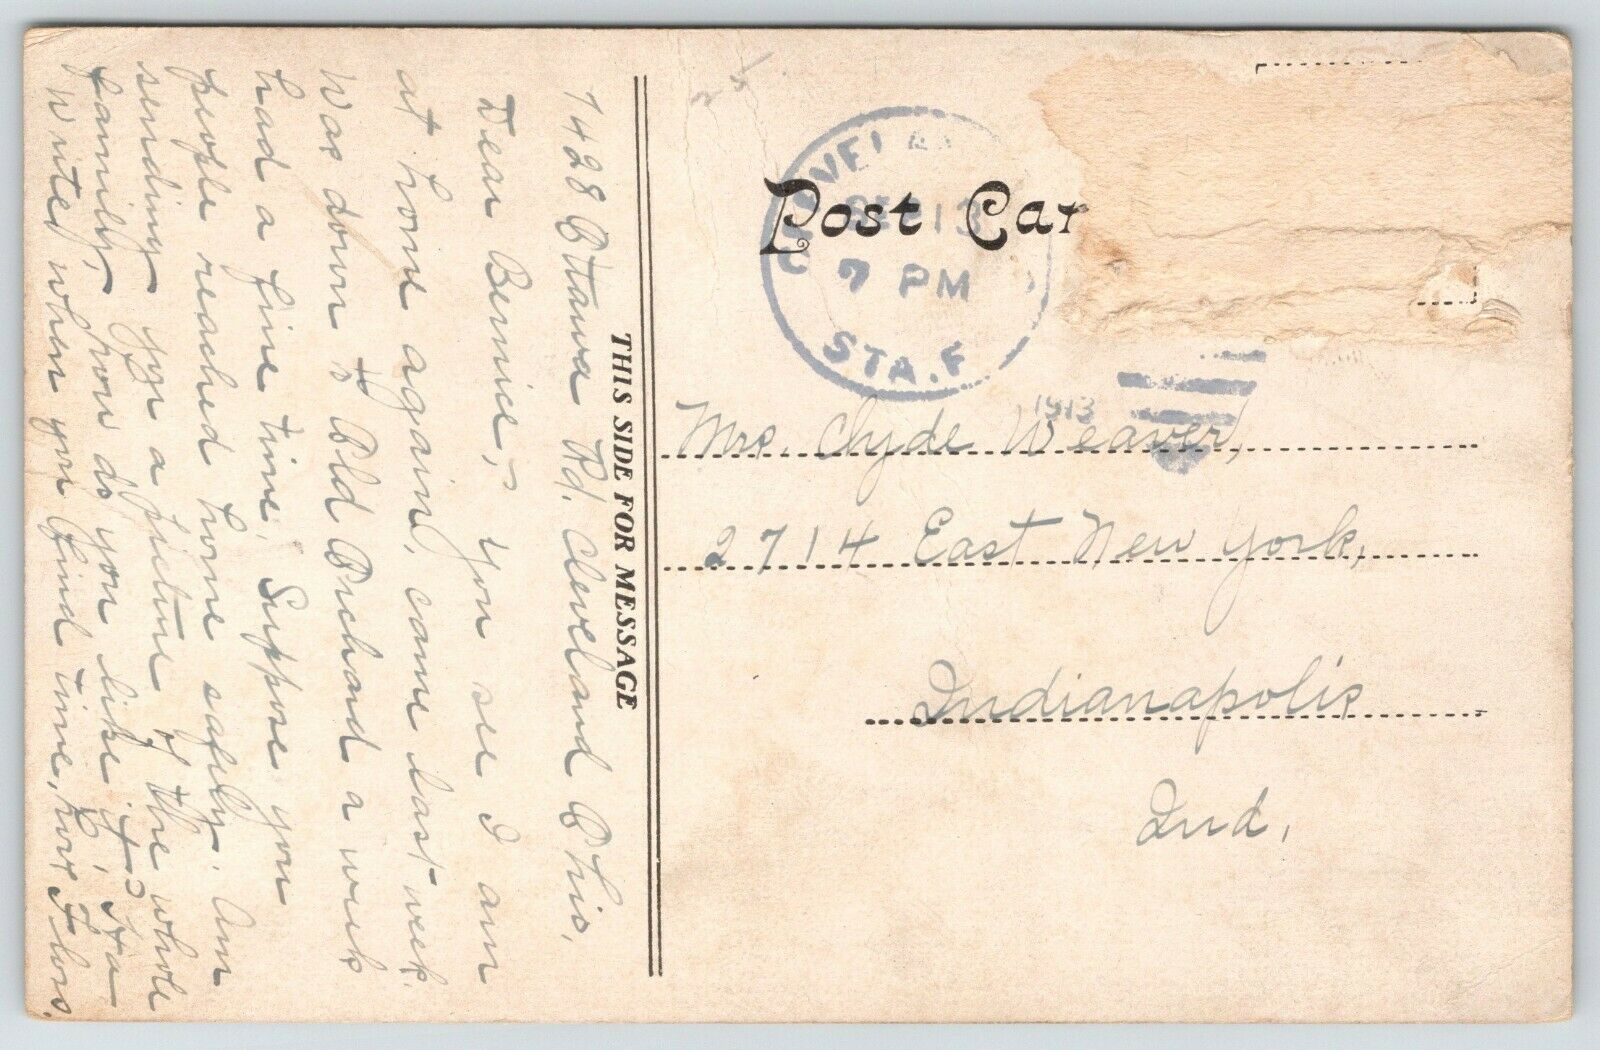 1428 Ottawa Rd. Cleveland Ohio,
Dear Bernice,- You see I am
at home again, came last week.
Was down to Old Orchard a week
had a fine time. Suppose you
people reached home safely. Am
sending you a picture of the whole
family, how do you like it?
Write when you find time,
THIS SIDE FOR MESSAGE
Post Car
CLEVELAN
SEP 13
7 PM
1913
STA. F
Mrs. Clyde Weaver,
2714 East New York,
Indianapolis
Ind,